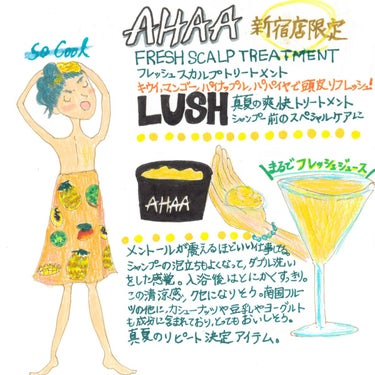 AHAA 新宿店限定
So Cool
FRESH SCALP TREATMENT
フレッシュスカルプトリートメント
キウイ、マンゴー、パイナップル、パパイヤで頭皮リフレッシュ!
LUSH 真夏の爽快トリートメント
シャンプー前のスペシャルケアに
まるでフレッシュジュース
AHAA
メントールが震えるほどいい仕事してる。
シャンプーの泡立ちもよくなって、ダブル洗い
をした感覚。入浴後はとにかくすっきり。
この清涼感、クセになりそう。南国フルー
ツの他に、カシューナッツや豆乳やヨーグルト
も成分に含まれており、とってもおいしそう。
真夏のリピート決定アイテム。